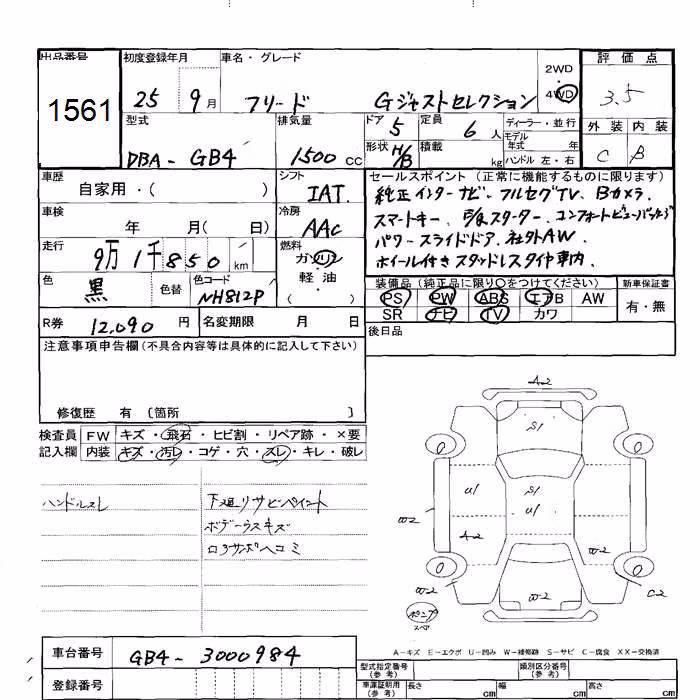 出品番号 初度登録年月 車名・グレード 評価点
1561 25 9月 フリード Gジャストセレクション 2WD・4WD 3.5
型式 排気量 ドア 5 定員 6人 ディーラー・並行 外装 内装
DBA-GB4 1500cc 形状 H/B 積載 kg モデル年式 年 ハンドル 左・右 C B
車歴 自家用・( ) シフト IAT セールスポイント(正常に機能するものに限ります)
純正インターナビ・フルセグTV、Bカメラ、
車検 年 月( 日) 冷房 AAC スマートキー、 スターター、コンフォートビュー
走行 9万1千850km 燃料 ガソリン・軽油・( ) パワースライドドア、社外AW、
ホイール付きスタッドレスタイヤ車内、
色 黒 色替 色コード NH812P 装備品(純正品に限り○をつけてください) 新車保証書
PS PW ABS エアB AW 有・無
R券 12,090円 名変期限 月 日 SR ナビ TV カワ
注意事項申告欄(不具合内容等は具体的に記入して下さい) 後日品
修復歴 有〔箇所 〕
検査員 FW キズ・飛石・ヒビ割・リペア跡・×要
記入欄 内装 キズ・汚レ・コゲ・穴・スレ・キレ・破レ
ハンドルスレ 下廻りサビペイント
ボデーウスキズ
ロアサポヘコミ
A-2
S1
U1 S1
U1
W-2 A-2 W-2
W-2 W-2 C-2
A-キズ E-エクボ U-凹み W-補修跡 S-サビ C-腐食 XX-交換済
車台番号 GB4-3000984
登録番号
型式指定番号(参考) 類別区分番号(参考)
車庫証明用(参考) 長さ cm 幅 cm 高さ cm